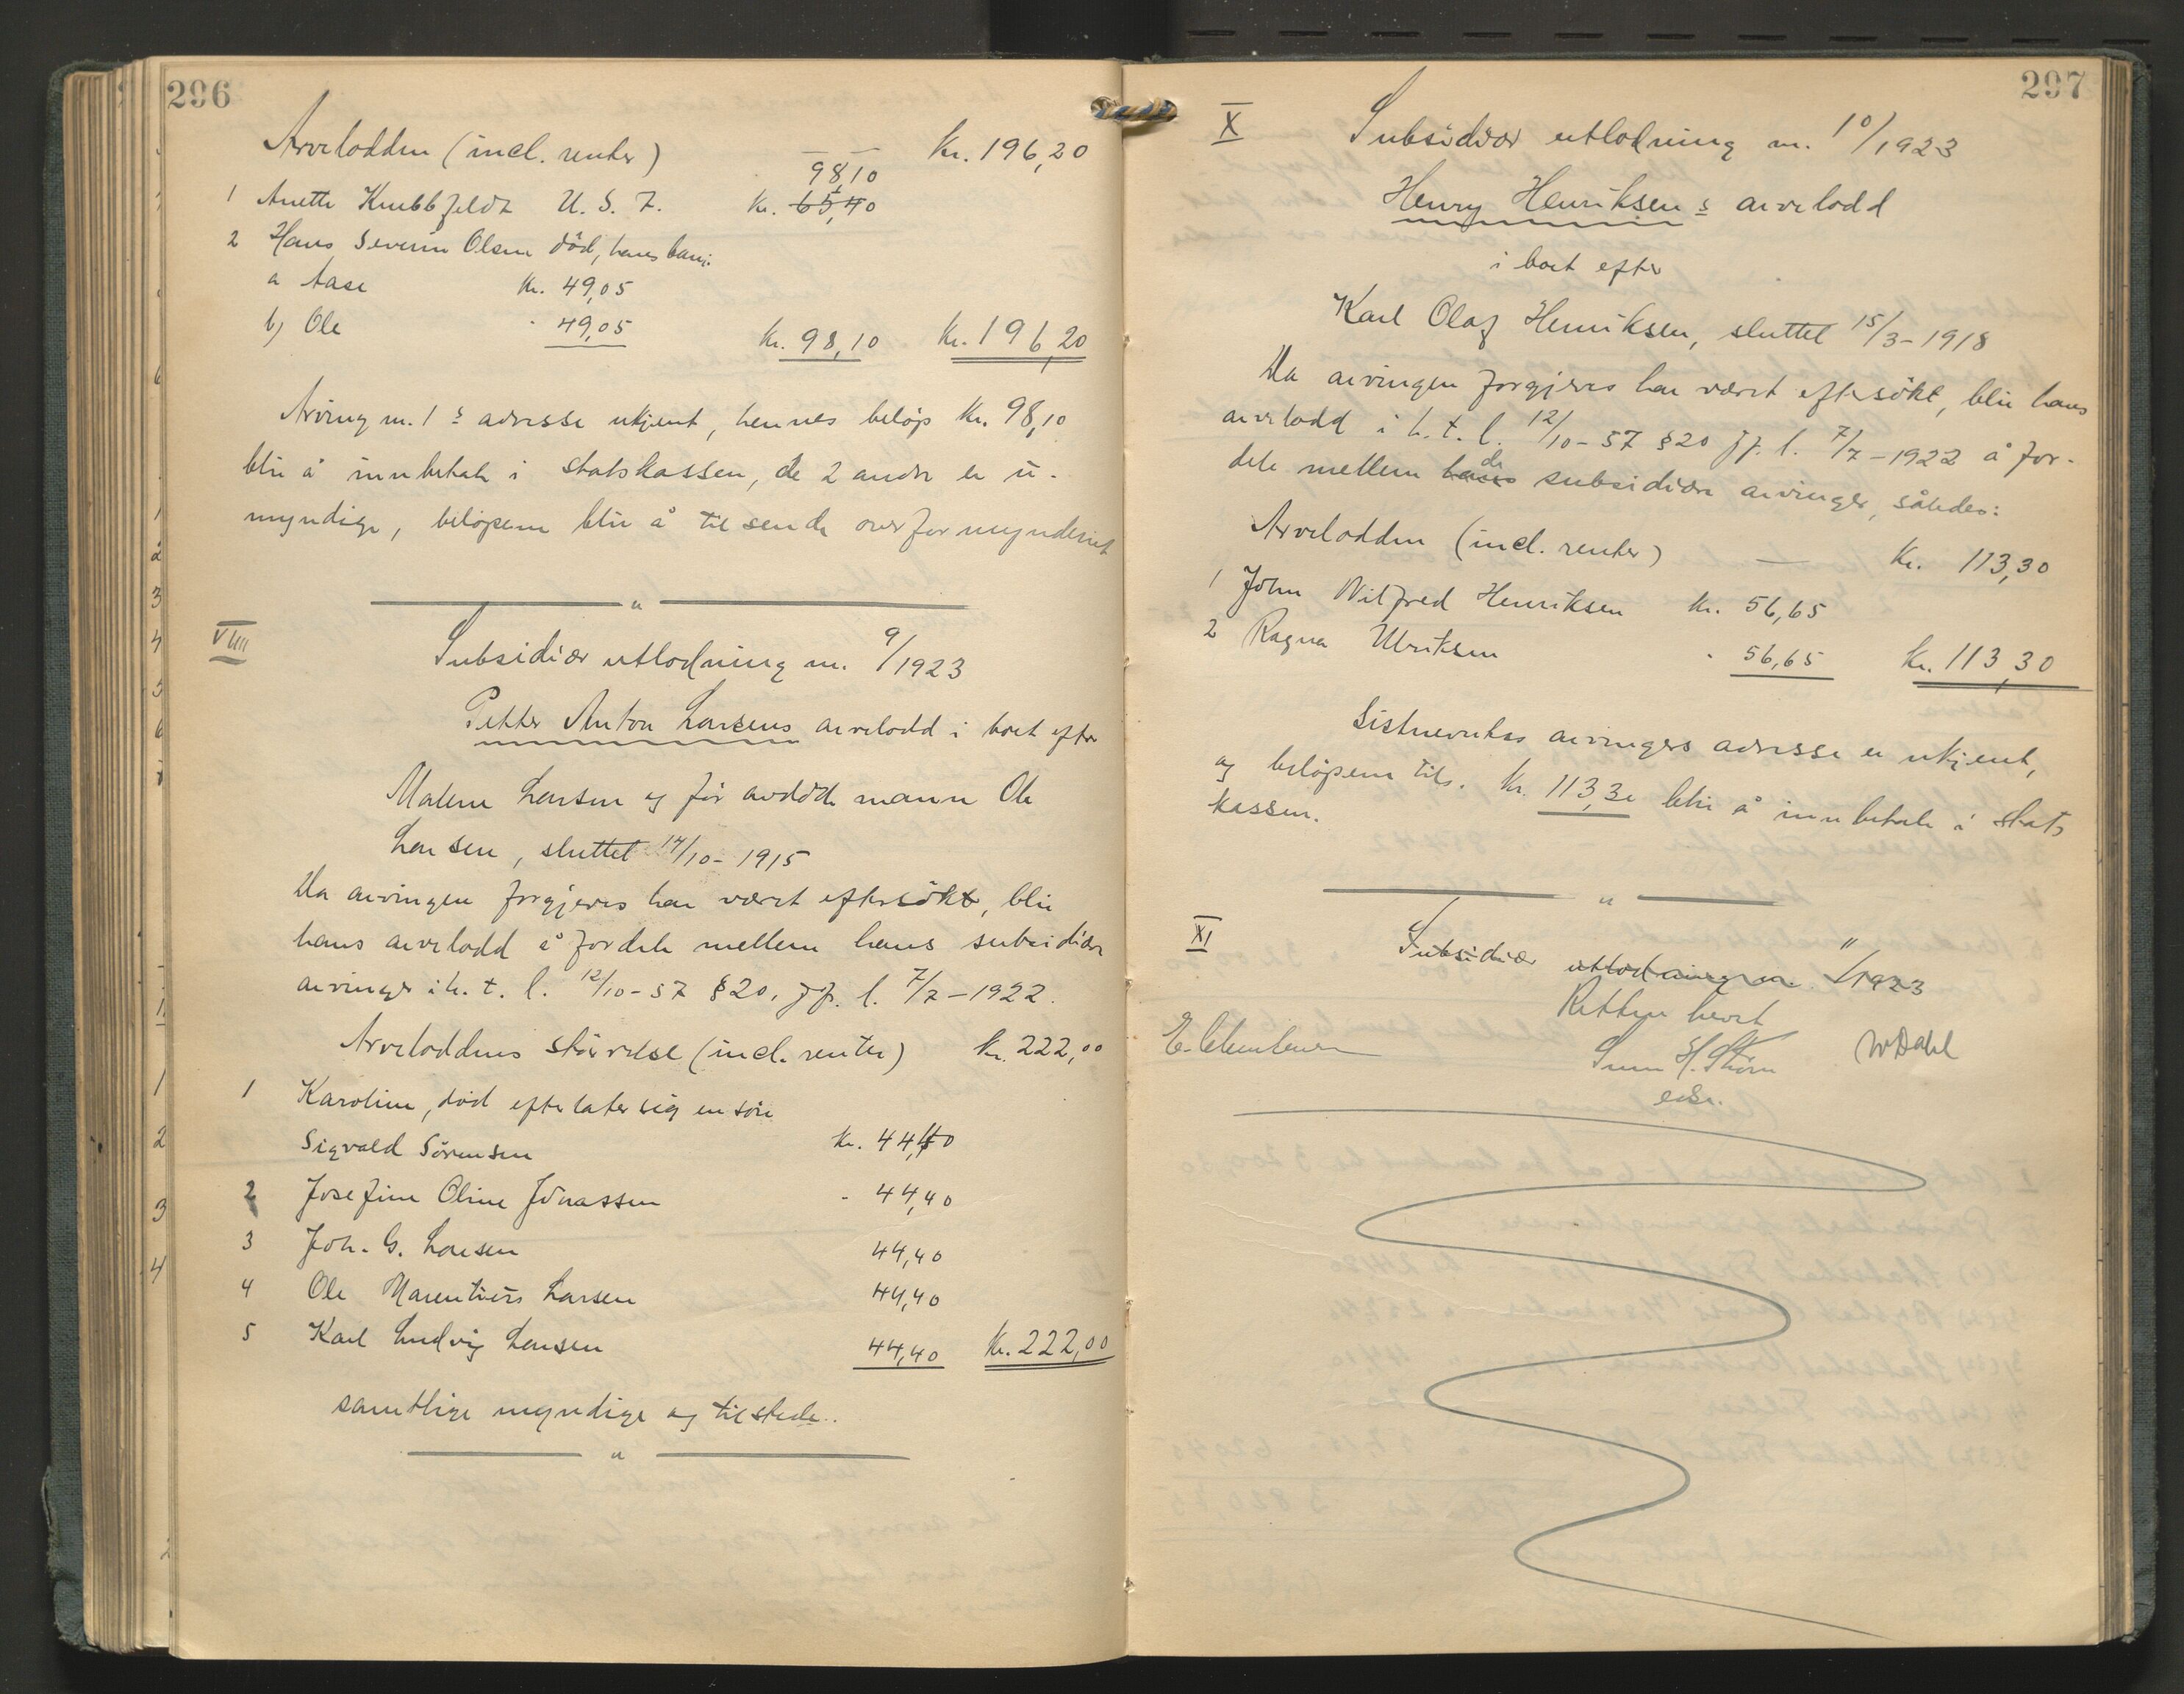 296
Arvelodden (incl. renter) — — Kr. 196,20
98,10
1 Anette Knubbfeldt U. S. A. Kr. 65,40
2 Hans Severin Olsen död, hans barn:
a Aase Kr. 49,05
b) Ole " 49,05 Kr. 98,10 Kr. 196,20
Arving nr. 1 s adresse ukjent, hennes beløp Kr. 98,10
blir å innbetale i statskassen, de 2 andre er u-
myndige, beløpene blir å tilsende overformynderiet
— " —
VIIII
Subsidiær utlodning nr. 9/1923
Petter Anton Larsens arvelodd i boet efter
Malene Larsen og før avdøde mann Ole
Larsen, sluttet 14/10-1915
Da arvingen forgjeves har været eftersökt, blir
hans arvelodd å fordele mellem hans subsidiære
arvinger i h. t. l. 12/10-57 § 20, jfr. l. 7/7-1922.
Arveloddens størrelse (incl. renter) Kr. 222,00
1 Karoline, död efterlater sig en sön
Sigvald Sörensen Kr. 44,40
2 Josefine Oline Jonassen " 44,40
3 Joh. G. Larsen 44,40
4 Ole Marentius Larsen 44,40
5 Karl Ludvig Larsen 44,40 Kr. 222,00
samtlige myndige og tilstede.
— " —
297
X Subsidiær utlodning nr. 10/1923
Henry Henriksens arvelodd
i boet efter
Karl Olaf Henriksen, sluttet 15/3-1918
Da arvingen forgjeves har været eftersökt, blir hans
arvelodd i h. t. l. 12/10-57 § 20 jfr. l. 7/7-1922 å for-
de
dele mellem hans subsidiære arvinger, således:
Arvelodden (incl. renter) — Kr. 113,30
1 John Wilfred Henriksen Kr. 56,65
2 Ragna Ulriksen " 56,65 Kr. 113,30
Sistnevntes arvingers adresse er ukjent,
og beløpene tils. Kr. 113,30 blir å innbetale i stats
kassen.
— " —
XI Subsidiær utlodning nr. 11/1923
Retten hevet
W Dahl